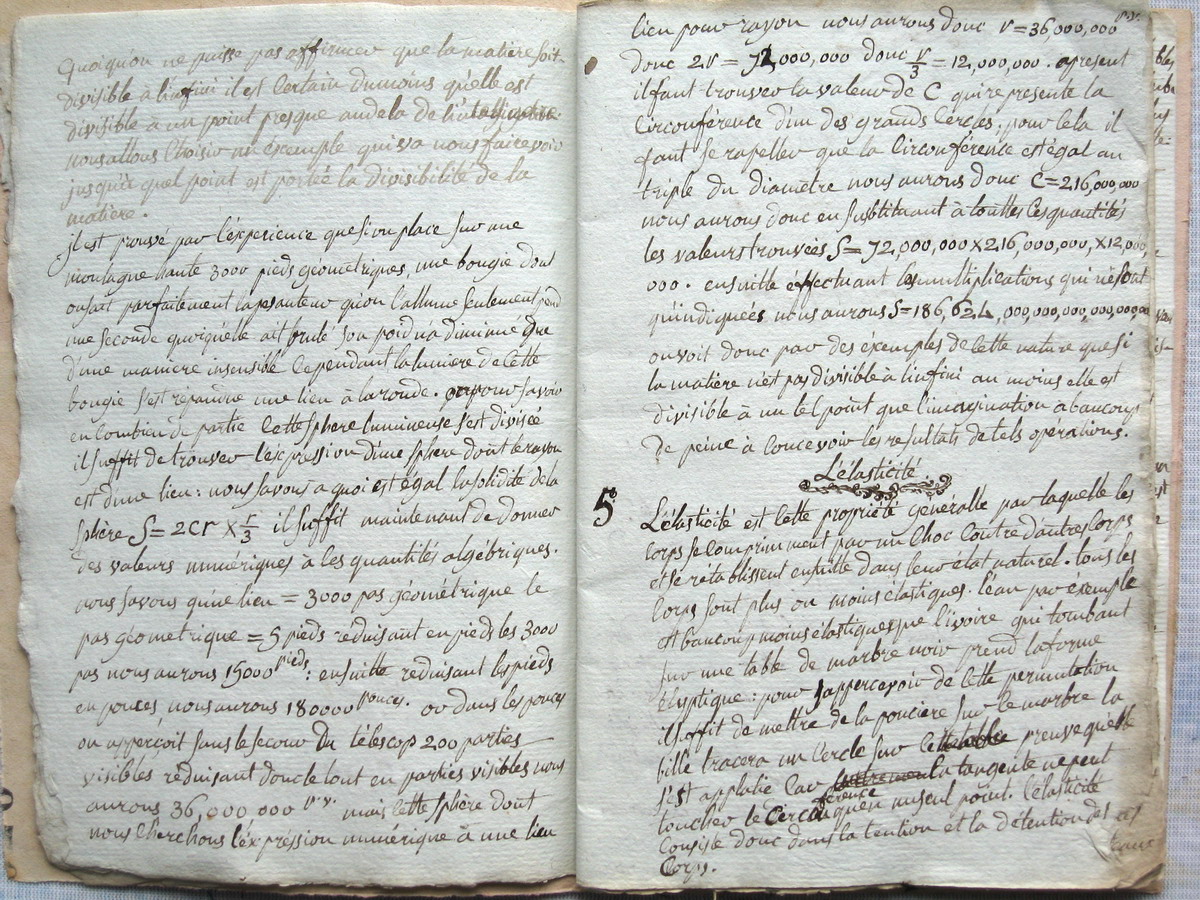 quoiqu'on ne puisse pas affirmer que la matière soit
divisible à linfini il est Certain dumoins qu'elle est
divisible à un point presque audela de
nous allons Choisir un exemple qui va nous faire voir
jusqu'à quel point est portée la divisibilité de la
matière.
il est prouvé par l'éxperience que si on place sur une
montagne haute 3000 pieds géometriques, une bougie dont
on sait parfaitement la pesanteur qu'on l'allume seulement pend
une seconde quoiquelle ait brulé son poid n'a diminué que
d'une maniere insensible Cependant la lumiere de Cette
bougie s'est répandue une lieu à la ronde. pour savoir
en Combien de partie Cette sphere lumineuse s'est divisée
il suffit de trouver l'expression d'une sphere dont le rayon
est d'une lieu : nous savons a quoi est égal la solidité de la
sphère S = 2cr × r/3 il suffit maintenant de donner
des valeurs numériques à les quantités algébriques.
nous savons qu'une lieu = 3000 pas géometrique le
pas géometrique = 5 pieds réduisant en pieds les 3000
pas nous aurons 15000 pieds : ensuitte réduisant les pieds
en pouces, nous aurons 180000 pouces. or dans les pouces
on apperçoit sans le secour du télescop 200 parties
visibles réduisant donc le tout en parties visibles nous
aurons 36,000,000 p.v. mais Cette sphère dont
nous Cherchons l'éxpréssion numérique à une lieu
lieu pour rayon nous aurons donc r = 36,000,000 p.v.
donc 2r = 72,000,000 donc r/3 = 12,000,000. apresent
il faut trouver la valeur de C qui represente la
Circonférence d'un des grands Cercles; pour Cela il
faut se rapeller que la Circonférence est égal au
triple du diamètre nous aurons donc C = 216,000,000
nous aurons donc en substituant à touttes Ces quantités
les valeurs trouvées S = 72,000,000 × 216,000,000, × 12,000
000. ensuitte éffectuant les multiplications qui ne sont
qu'indiquées nous aurons S = 186,624,000,000,000,000,000
on voit donc par des éxemples de Cette nature que si
la matière n'est pas divisible à linfini au moins elle est
divisible à un tel point que l'imagination a baucoup
de peine à Concevoir les resultats de tels opérations.
L'élasticité
5° L'élasticité est Cette propriété Génerálle par laquelle les
Corps se Comprimment par un Choc Contre d'autres Corps
et se rétablissent ensuitte dans leur état naturel. tous les
Corps sont plus ou moins élastiques. l'eau par exemple
est baucoup moins élastiques que l'ivoire qui tombant
sur une table de marbre noir prend la forme
éliptique : pour s'appercevoir de Cette permutation
il suffit de mettre de la pouciere sur le marbre la
bille tracera un Cercle sur preuve qu'elle
s'est applatie Car la tangente ne peut
toucher le Cerconférence qu'en un seul point. l'élasticité
Consiste donc dans la tention et la détention des
Corps.